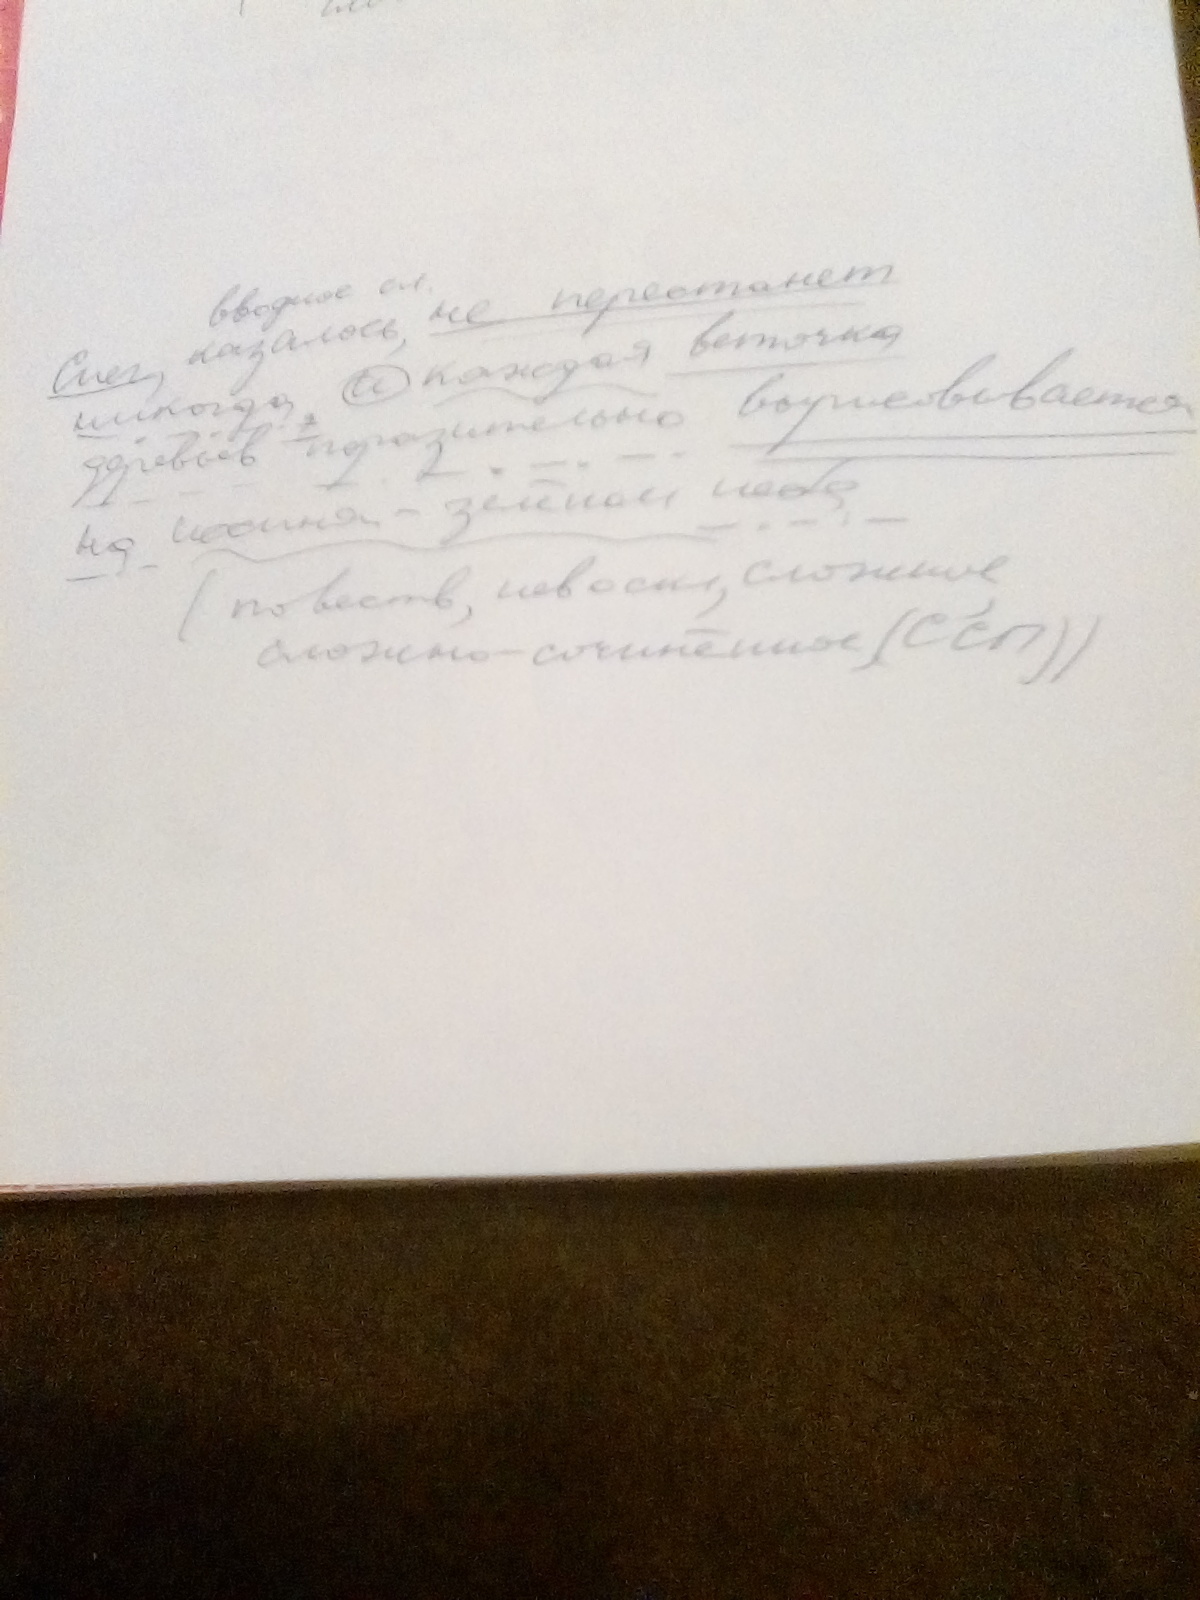 вводное сл.
Снег, казалось, не перестанет
никогда, и каждая веточка
деревьев поразительно вырисовывается
на иссиня-зелёном небе
(повеств, невоскл, сложное
сложно-сочинённое (ССП))